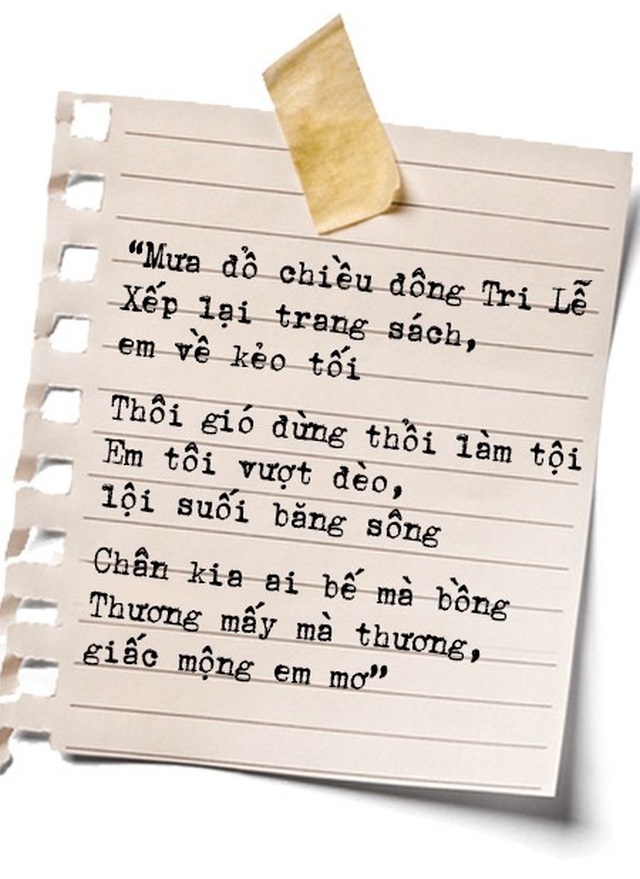 “Mưa đổ chiều đông Tri Lễ
Xếp lại trang sách,
em về kẻo tối
Thôi gió đừng thổi làm tội
Em tôi vượt đèo,
lội suối băng sông
Chân kia ai bế mà bồng
Thương mấy mà thương,
giấc mộng em mơ”